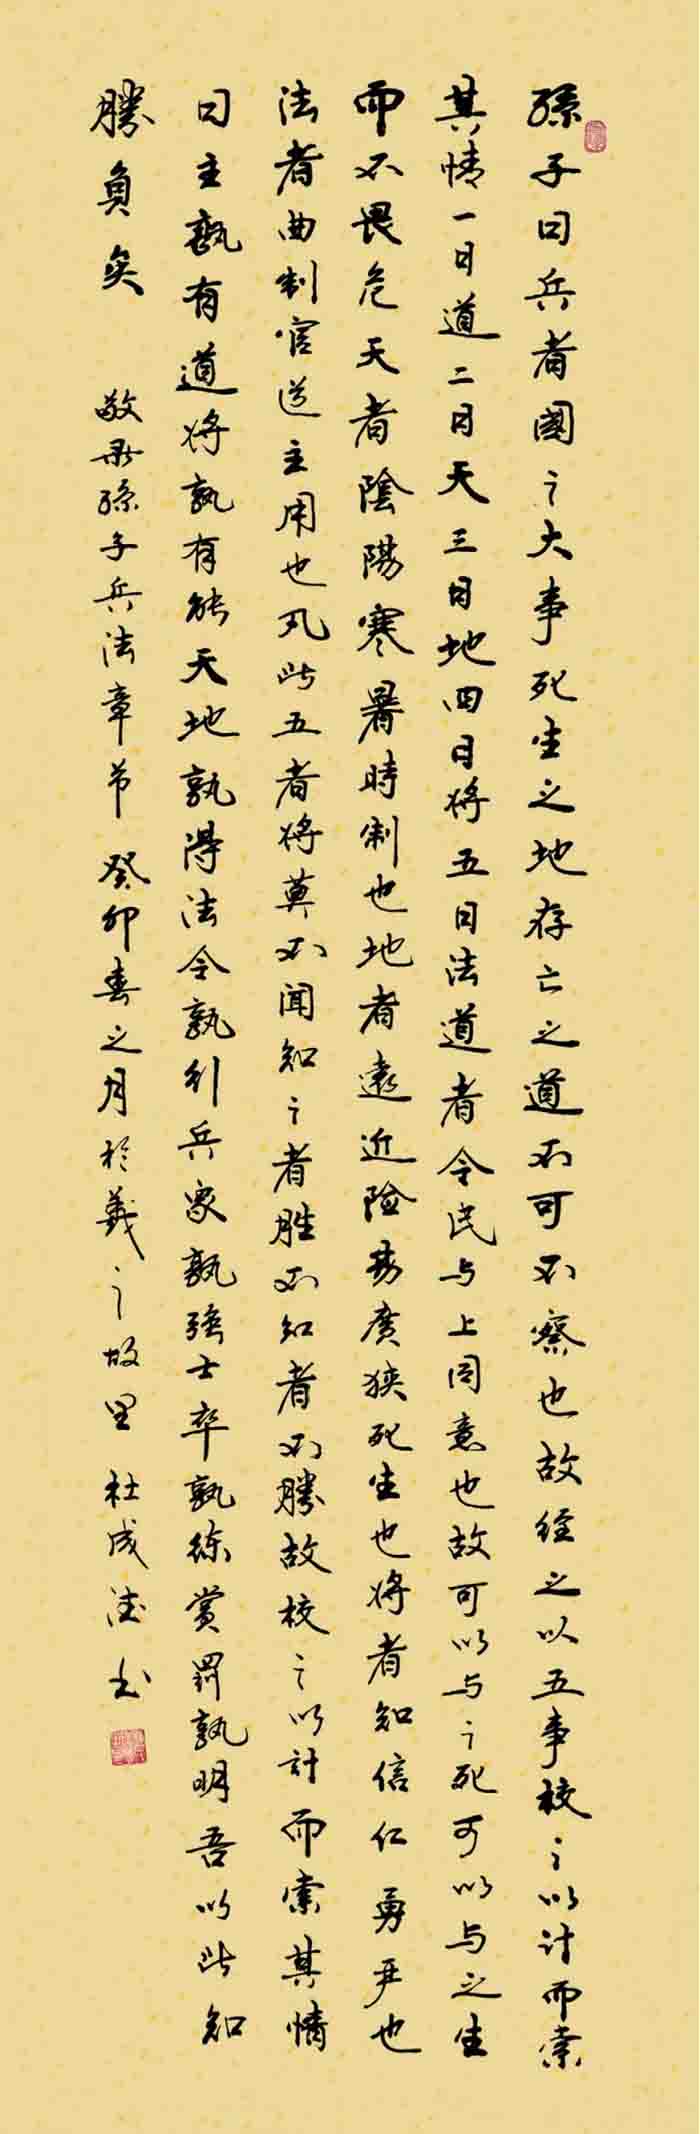 孫子曰兵者國之大事死生之地存亡之道不可不察也故經之以五事校之以計而索
其情一曰道二曰天三曰地四曰將五曰法道者令民与上同意也故可以与之死可以与之生
而不畏危天者陰陽寒暑時制也地者遠近險易廣狹死生也將者知信仁勇嚴也
法者曲制官道主用也凡此五者將莫不闻知之者胜不知者不勝故校之以計而索其情
曰主孰有道將孰有能天地孰得法令孰行兵衆孰強士卒孰練賞罰孰明吾以此知
勝負矣 敬录孫子兵法章节 癸卯春之月於羲之故里 杜成法书